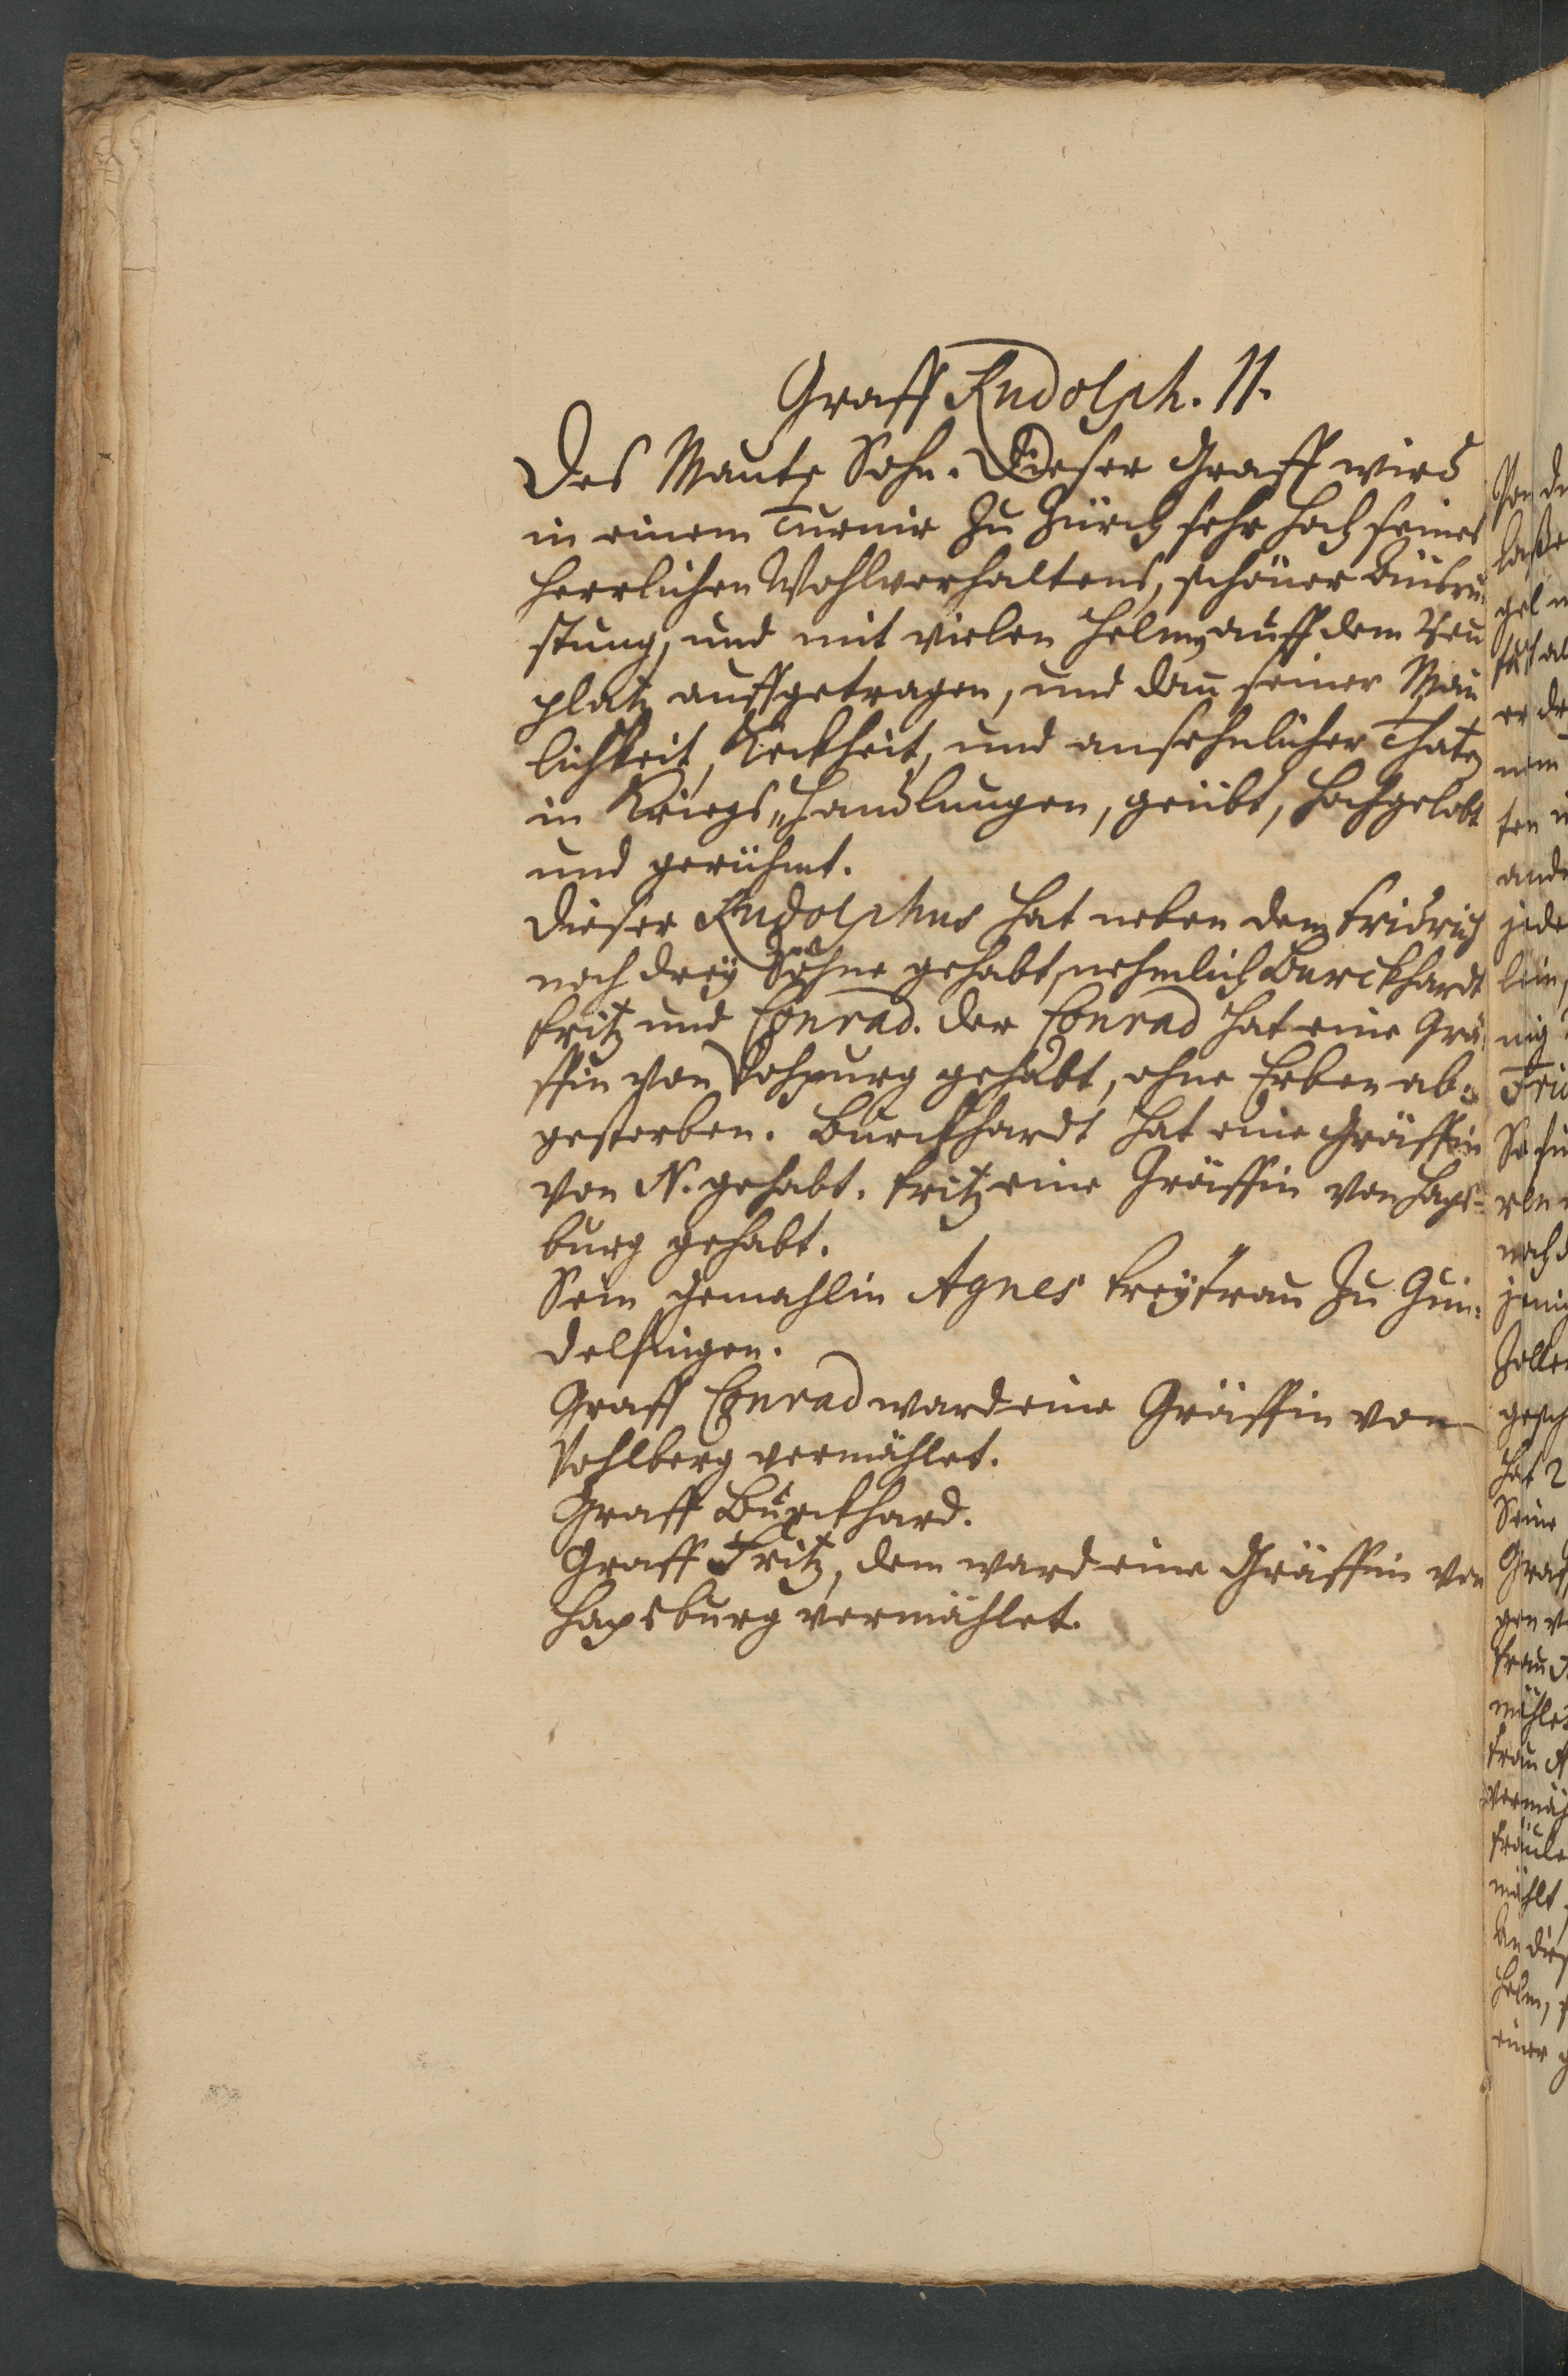 Graff Rudolph. II.
Des Mante Sohn. Dieser Graff wird
in einem Turnir zu Zürch sehr hoch seines
herrlichen Wohlverhaltens, schöner Außrü-
stung, und mit vielen Helmen auff dem
platz auffgetragen, und dan seiner Man
lichkeit, Keckheit, und ansehnlicher Thaten
in Kriegs„Handlungen, geübt, hochgelobt
und gerühmt.
Dieser Rudolphus hat neben dem Fridrich
noch drey Söhne gehabt, nehmlich Burckhardt
Fritz und Conrad. der Conrad hat eine Grä-
ffin von gehabt, ohne Erben ab-
gestorben. Burckhardt hat eine Gräffin
von N. gehabt. Fritz eine Gräffin von Haps-
burg gehabt.
Sein Gemahlin Agnes Freyfrau zu Gun-
delfingen.
Graff Conrad ward eine Gräffin von
Vohlberg vermählet.
Graff Burckhard.
Graff Fritz, dem ward eine Gräffin von
Hapsburg vermählet.